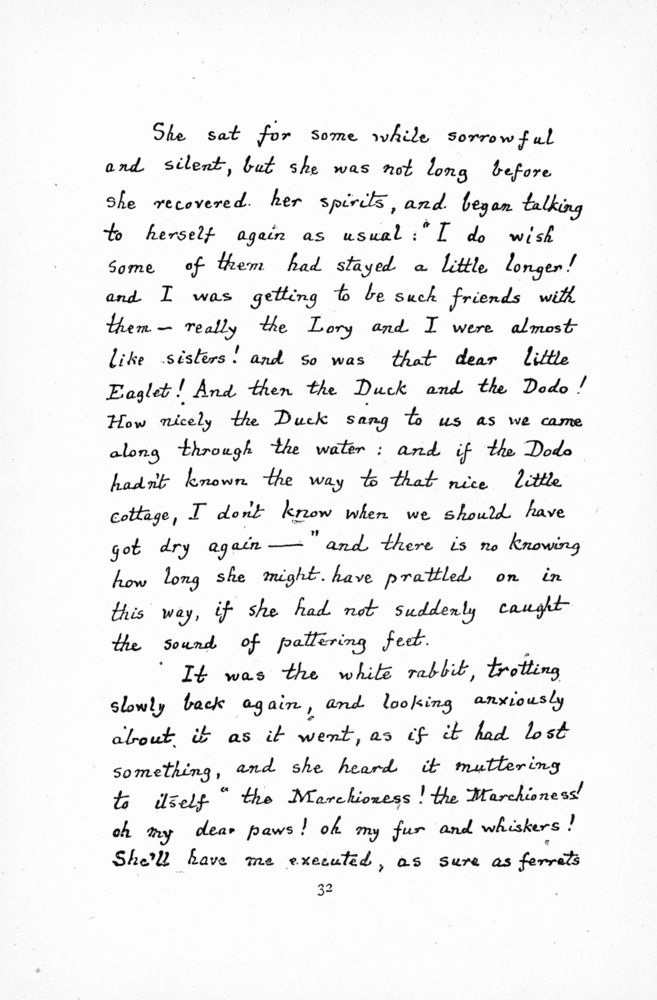 She sat for some while sorrowful
and silent, but she was not long before
she recovered her spirits, and began talking
to herself again as usual: "I do wish
some of them had stayed a little longer!
and I was getting to be such friends with
them — really the Lory and I were almost
like sisters! and so was that dear little
Eaglet! And then the Duck and the Dodo!
How nicely the Duck sang to us as we came
along through the water: and if the Dodo
hadn't known the way to that nice little
cottage, I don't know when we should have
got dry again —" and there is no knowing
how long she might have prattled on in
this way, if she had not suddenly caught
the sound of pattering feet.
It was the white rabbit, trotting
slowly back again, and looking anxiously
about it as it went, as if it had lost
something, and she heard it muttering
to itself "the Marchioness! the Marchioness!
oh my dear paws! oh my fur and whiskers!
She'll have me executed, as sure as ferrets
32